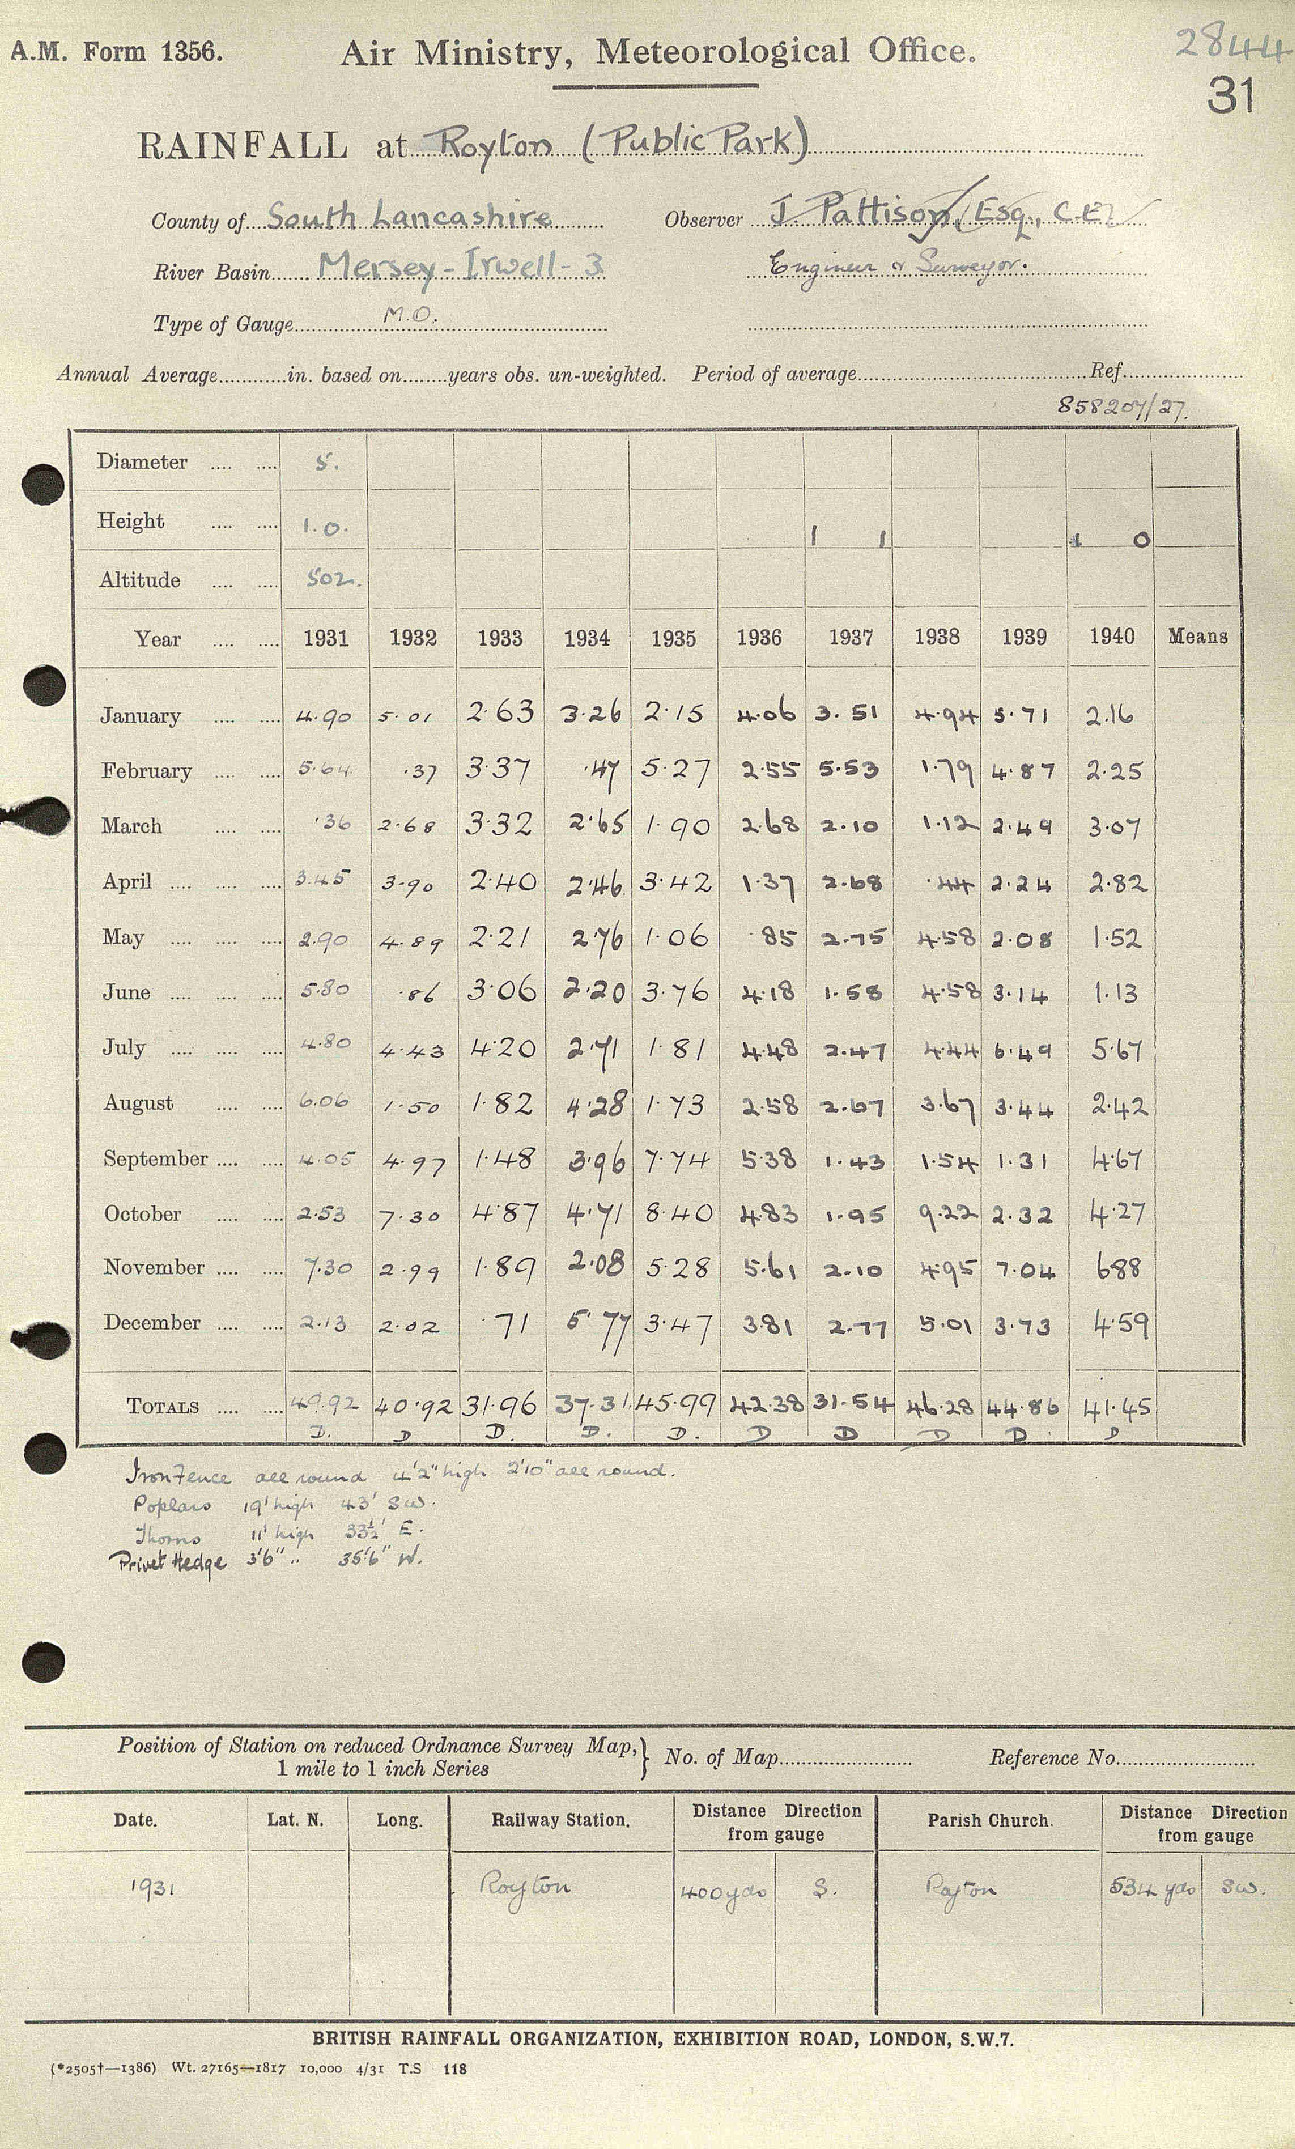 A.M. Form 1356. Air Ministry, Meteorological Office. 2844
31
RAINFALL at Royton (Public Park)
County of South Lancashire Observer J Pattison, Esq., C.E.
River Basin Mersey-Irwell-3 Engineer & Surveyor.
Type of Gauge M.O.
Annual Average in. based on years obs. un-weighted. Period of average Ref
858207/27.
Diameter 5.
Height 1.0. 1 1 1 0
Altitude 502.
Year 1931 1932 1933 1934 1935 1936 1937 1938 1939 1940 Means
January 4.90 5.01 2.63 3.26 2.15 4.06 3.51 4.94 5.71 2.16
February 5.64 .37 3.37 .47 5.27 2.55 5.53 1.79 4.87 2.25
March .36 2.68 3.32 2.65 1.90 2.68 2.10 1.12 2.49 3.07
April 3.45 3.90 2.40 2.46 3.42 1.37 2.68 .44 2.24 2.82
May 2.90 4.89 2.21 2.76 1.06 .85 2.75 4.58 2.08 1.52
June 5.80 .86 3.06 2.20 3.76 4.18 1.58 4.58 3.14 1.13
July 4.80 4.43 4.20 2.71 1.81 4.48 2.47 4.44 6.49 5.67
August 6.06 1.50 1.82 4.28 1.73 2.58 2.67 3.67 3.44 2.42
September 4.05 4.97 1.48 3.96 7.74 5.38 1.43 1.54 1.31 4.67
October 2.53 7.30 4.87 4.71 8.40 4.83 1.95 9.22 2.32 4.27
November 7.30 2.99 1.89 2.08 5.28 5.61 2.10 4.95 7.04 6.88
December 2.13 2.02 .71 5.77 3.47 3.81 2.77 5.01 3.73 4.59
TOTALS 49.92 40.92 31.96 37.31 45.99 42.38 31.54 46.28 44.86 41.45
D. D D. D. D. D D D D. D
Iron Fence all round 4'2" high 2'10" all round.
Poplars 19' high 43' SW.
Thorns 11' high 33½' E.
Privet Hedge 3'6" " 35'6" W.
Position of Station on reduced Ordnance Survey Map, } No. of Map Reference No.
1 mile to 1 inch Series
Date. Lat. N. Long. Railway Station. Distance Direction from gauge Parish Church. Distance Direction from gauge
1931 Royton 400 yds S. Royton 534 yds SW.
BRITISH RAINFALL ORGANIZATION, EXHIBITION ROAD, LONDON, S.W.7.
(*2505†—1386) Wt. 27165—1817 10,000 4/31 T.S 118